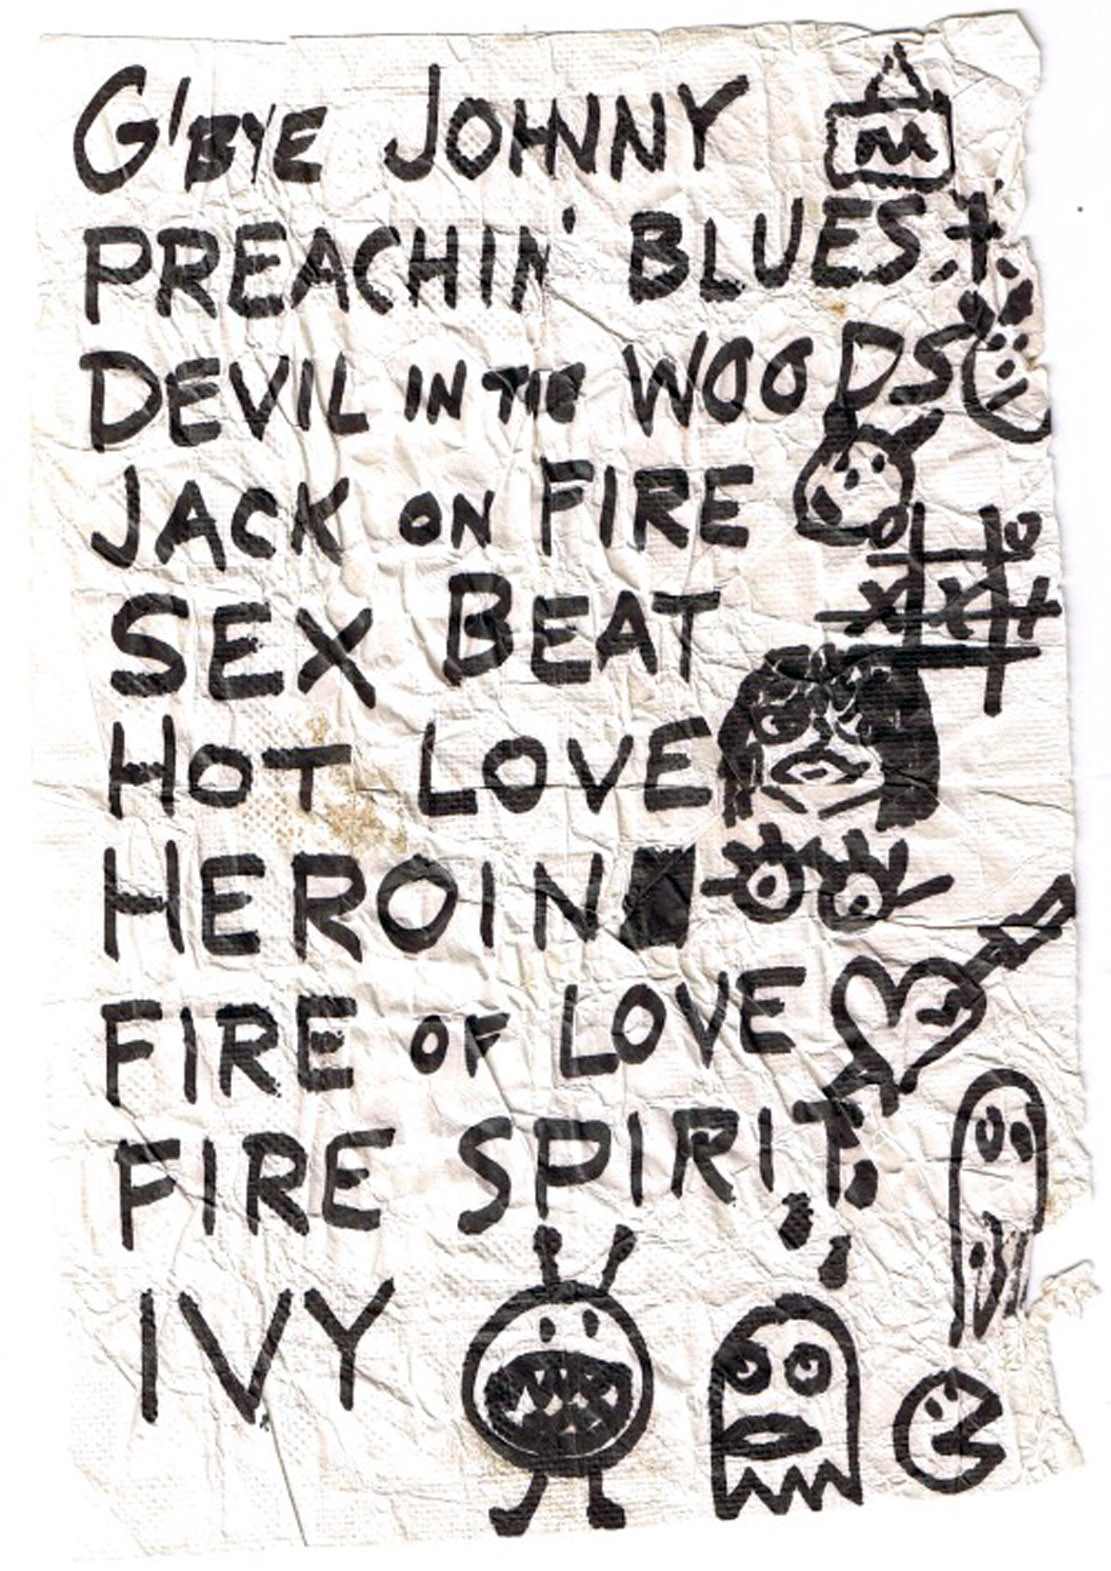 G'BYE JOHNNY
PREACHIN' BLUES
DEVIL IN THE WOODS
JACK ON FIRE
SEX BEAT
HOT LOVE
HEROIN
FIRE OF LOVE
FIRE SPIRIT
IVY